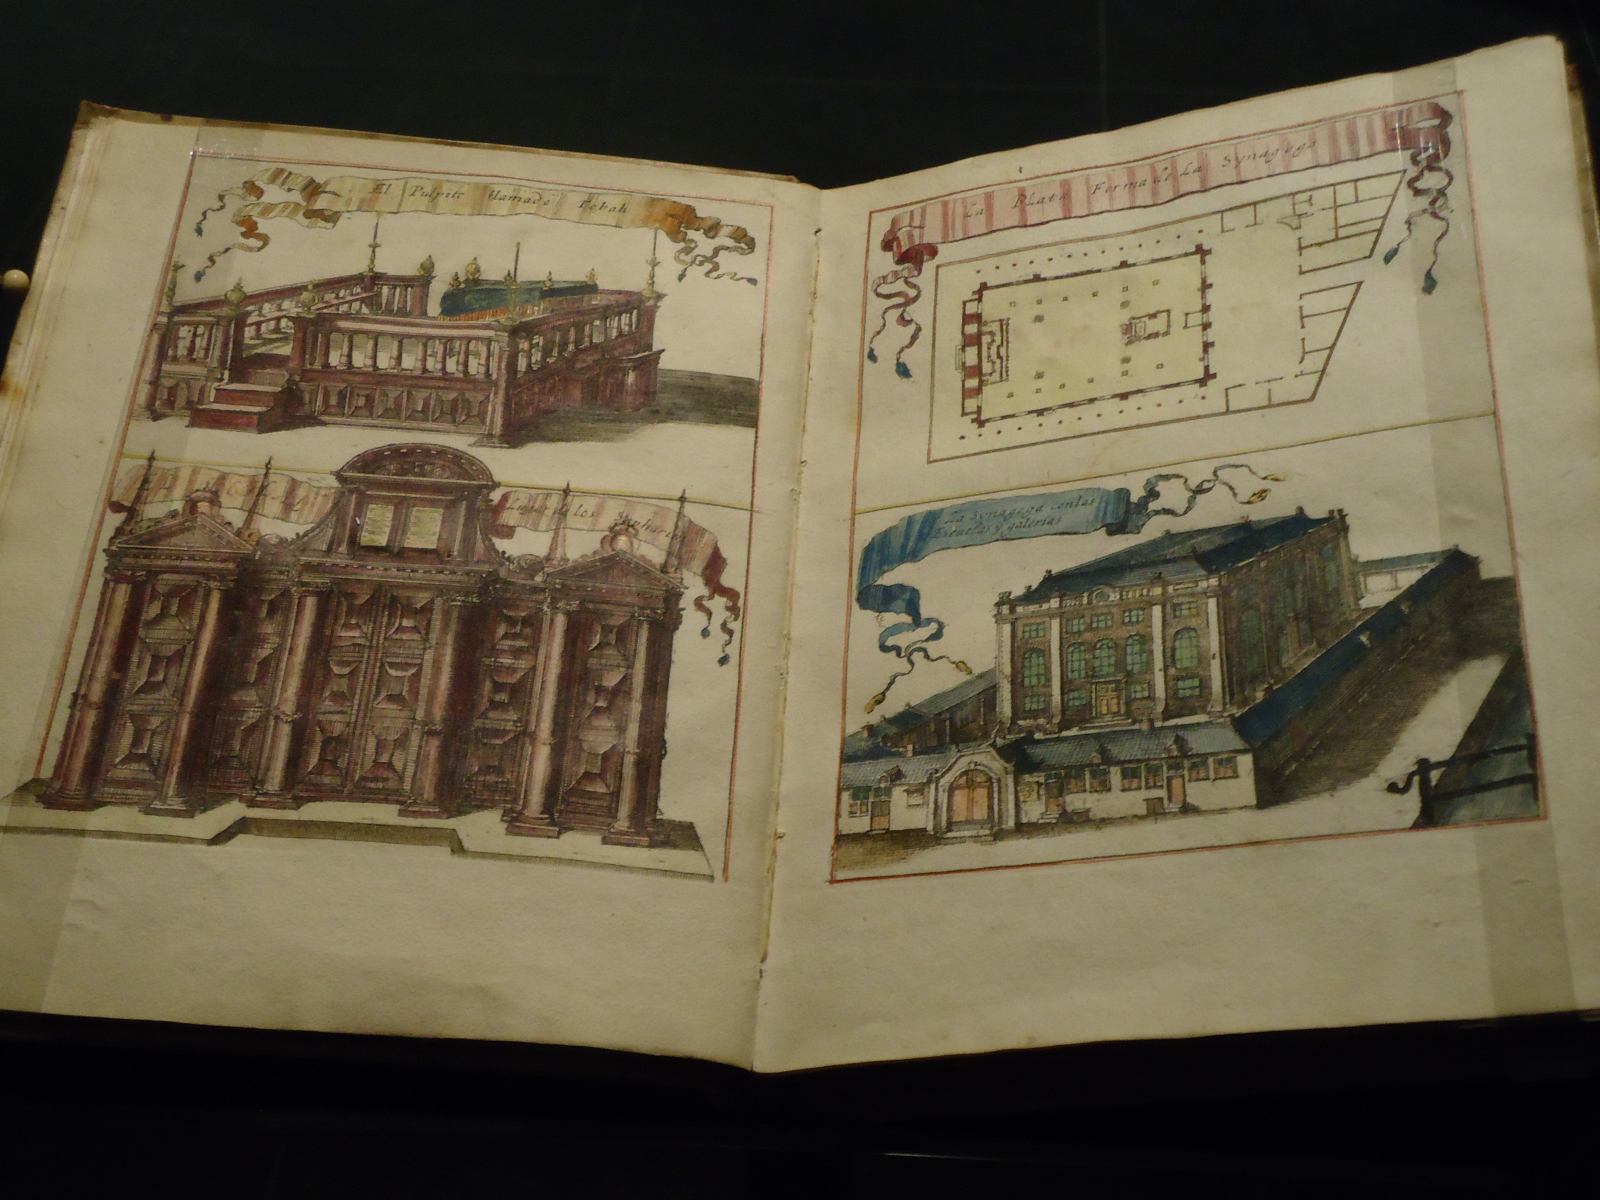 El Pulpito llamado Tebah
Lugar de los Sepharim
La Plata Forma de La Synagoga
La Synagoga con las
Escuelas y galerias